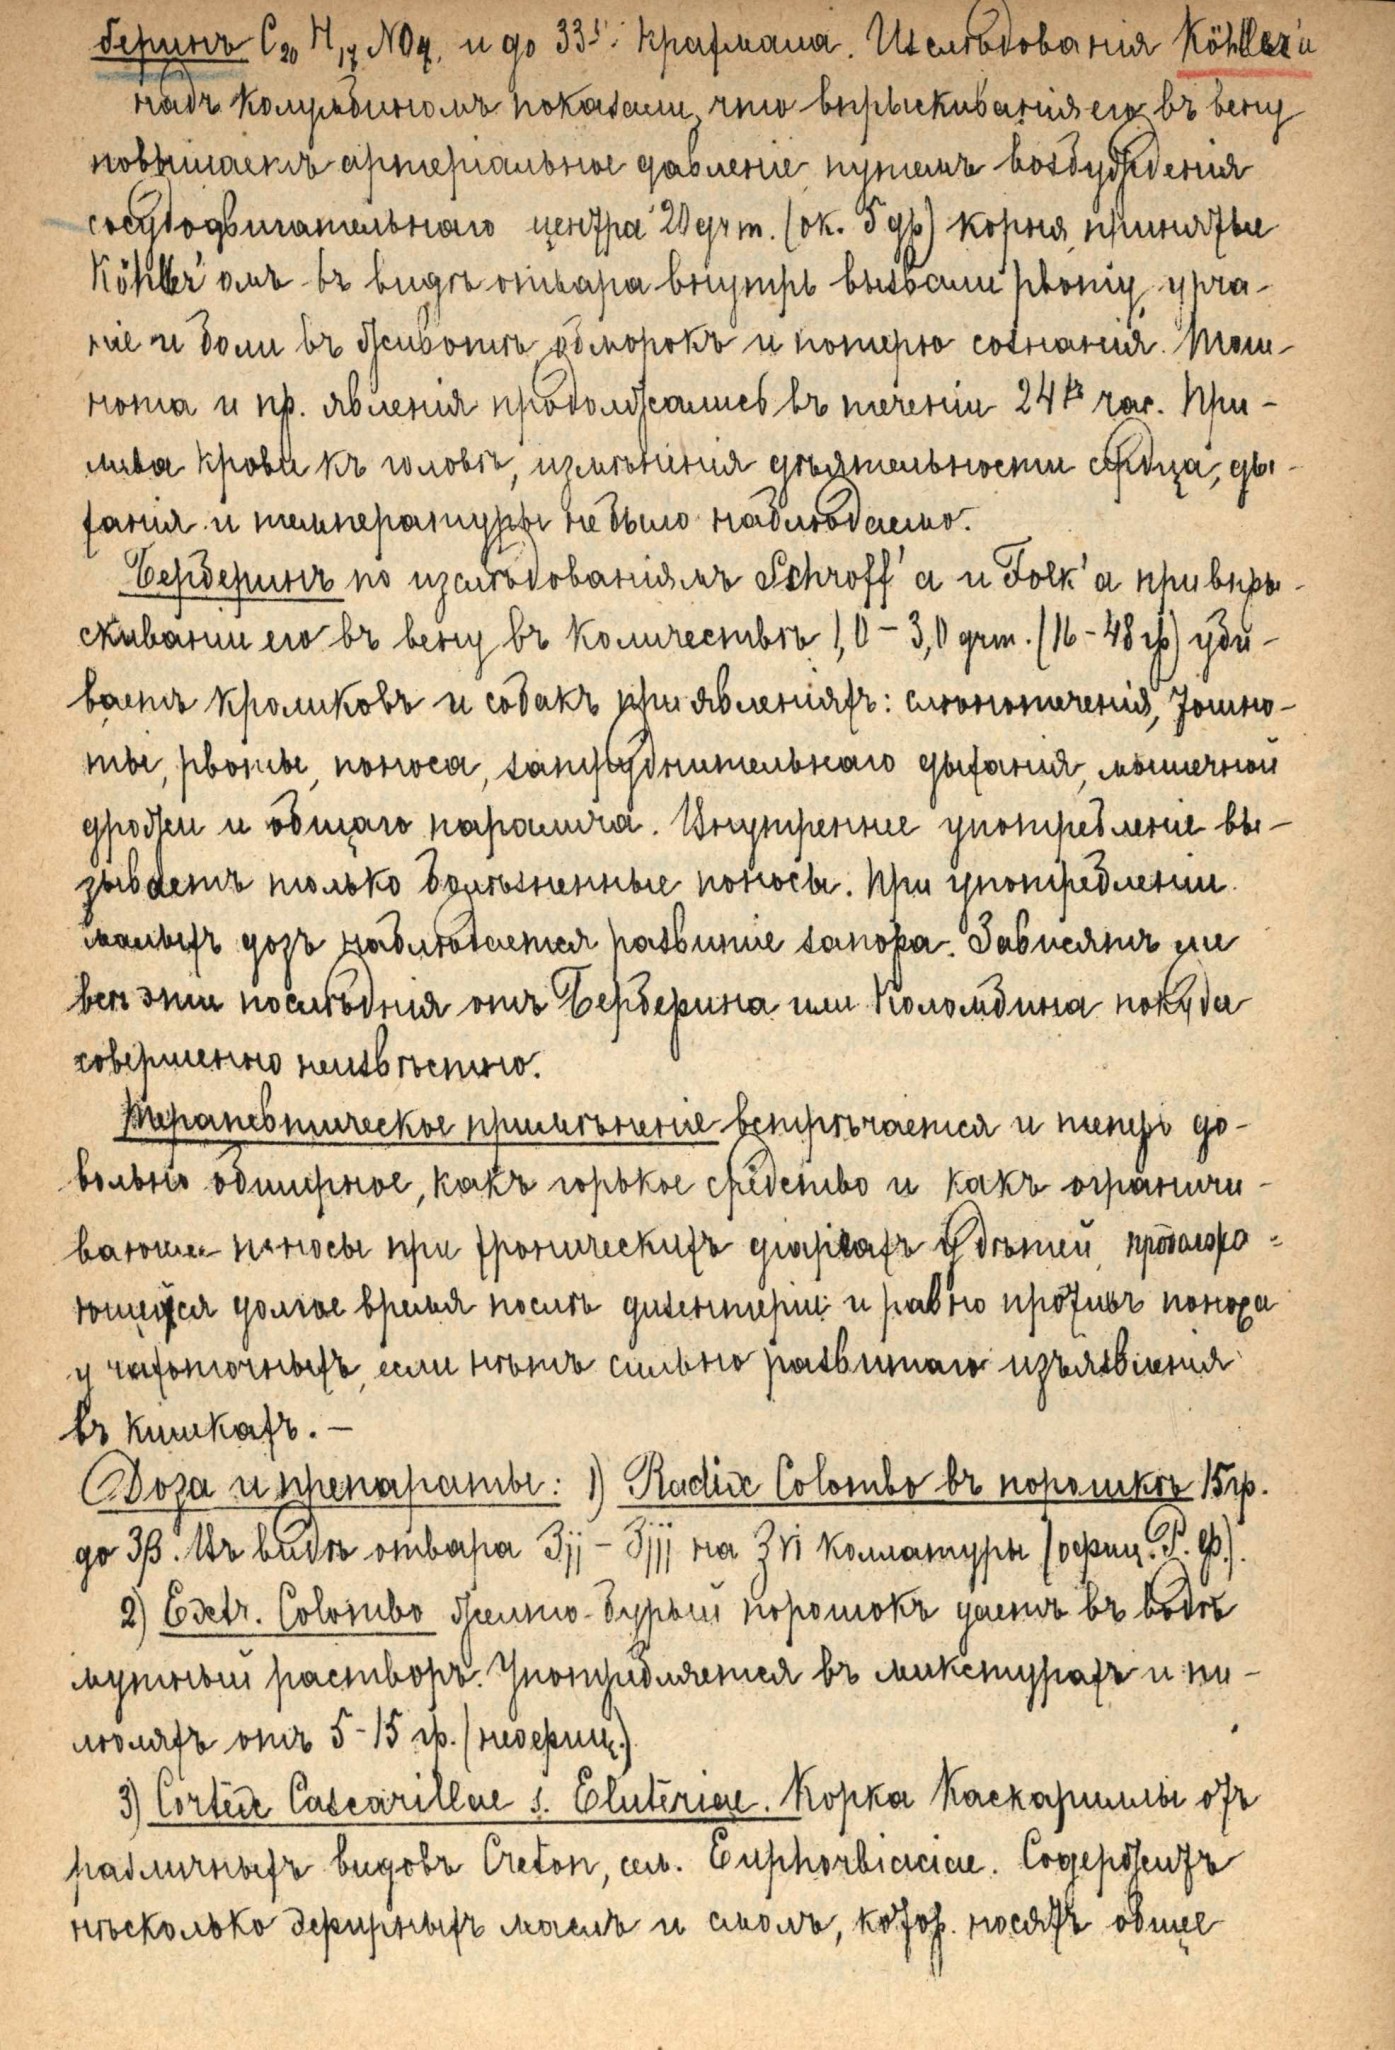 беринъ C₂₀ H₁₇ NO₄, и до 33% крахмала. Изслѣдованія Köhler'а
надъ колумбиномъ показали, что впрыскиванія его въ вену
повышаетъ артеріальное давленіе путемъ возбужденія
сосудодвигательнаго центра 20 grm. (ок. 5 др) корня, принятые
Köhler'омъ въ видѣ отвара внутрь вызвали рвоту, урча-
ніе и боли въ животѣ, обморокъ и потерю сознанія. Тош-
нота и пр. явленія продолжались въ теченіи 24х час. При-
лива крови къ головѣ, измѣненія дѣятельности сердца, ды-
ханія и температуры не было наблюдаемо.
Берберинъ по изслѣдованіямъ Schroff'а и Folk'а при впры-
скиваніи его въ вену въ количествѣ 1,0 – 3,0 grm. (16 – 48 гр) уби-
ваетъ кроликовъ и собакъ при явленіяхъ: слюнотеченія, тошно-
ты, рвоты, поноса, затруднительнаго дыханія, мышечной
дрожи и общаго паралича. Внутренне употребленіе вы-
зываетъ только болѣзненные поносы. При употребленіи
малыхъ дозъ наблюдается развитіе запора. Зависятъ ли
всѣ эти послѣднія отъ Берберина или Коломбина покуда
совершенно неизвѣстно.
Терапевтическое примѣненіе встрѣчается и теперь до-
вольно обширное, какъ горькое средство и какъ ограничи-
вающее поносы при хроническихъ діарреахъ у дѣтей, продолжа-
ющейся долгое время послѣ дизентеріи и равно противъ поноса
у чахоточныхъ, если нѣтъ сильно развитаго изъязвленія
въ кишкахъ. –
Доза и препараты: 1) Radix Colombo въ порошкѣ 15 гр.
до ʒβ. Въ видѣ отвара ʒjj – ʒjjj на ℥vi коллатуры (офиц. Р. Ф.).
2) Extr. Colombo желто-бурый порошокъ даетъ въ водѣ
мутный растворъ. Употребляется въ микстурахъ и пи-
люляхъ отъ 5 – 15 гр. (неофиц.)
3) Cortex Cascarillae s. Eluteriae. Корка Каскариллы отъ
различныхъ видовъ Creton, сем. Euphorbiaciae. Содержитъ
нѣсколько эфирныхъ маслъ и смолъ, котор. носятъ общее